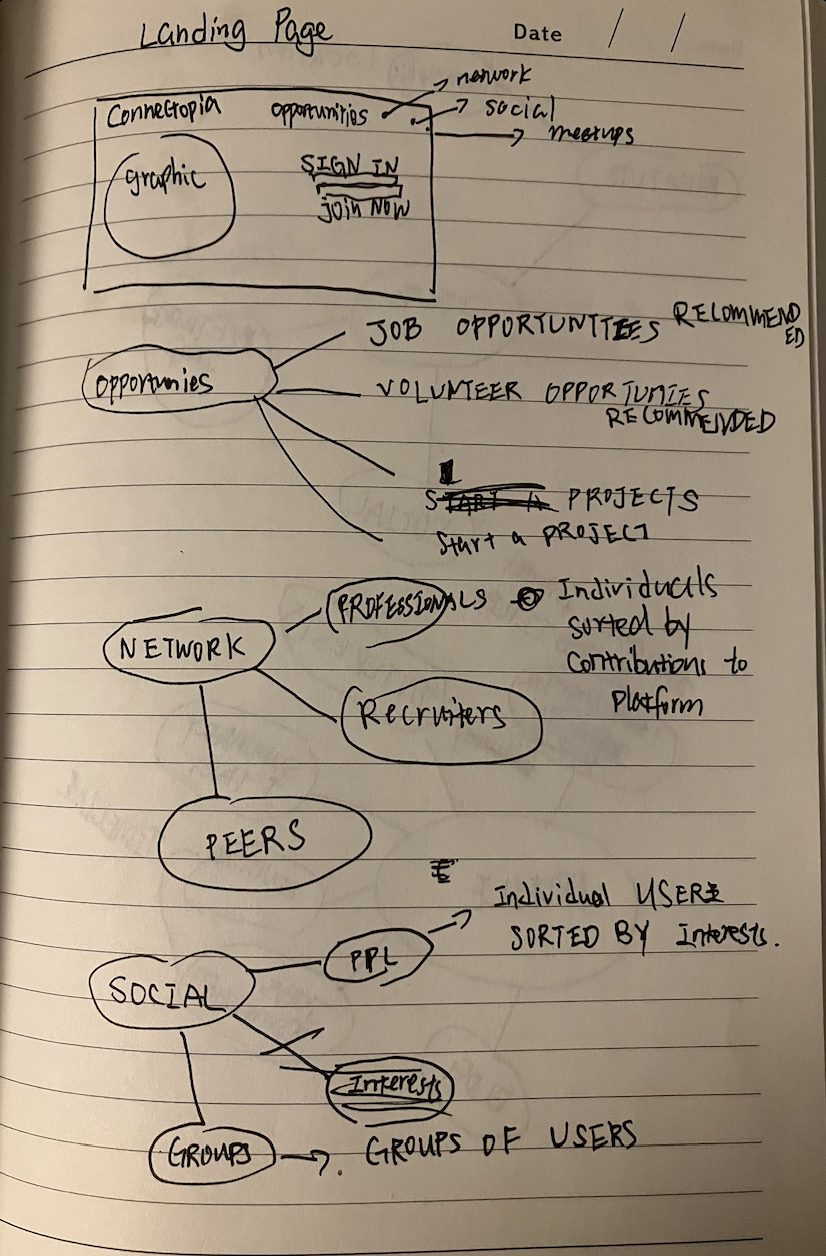 Landing Page
Date / /
Connectopia opportunities
network
social
meetups
graphic
SIGN IN
Join NOW
JOB OPPORTUNITIES RECOMMEND
ED
opportunies
VOLUNTEER OPPORTUNIES
RECOMMENDED
START A PROJECTS
Start a PROJECT
NETWORK
PROFESSIONALS
Individuals
sorted by
contributions to
Platform
Recruiters
PEERS
Individual USERS
SORTED BY Interests.
PPL
SOCIAL
Interests
GROUPS
GROUPS OF USERS